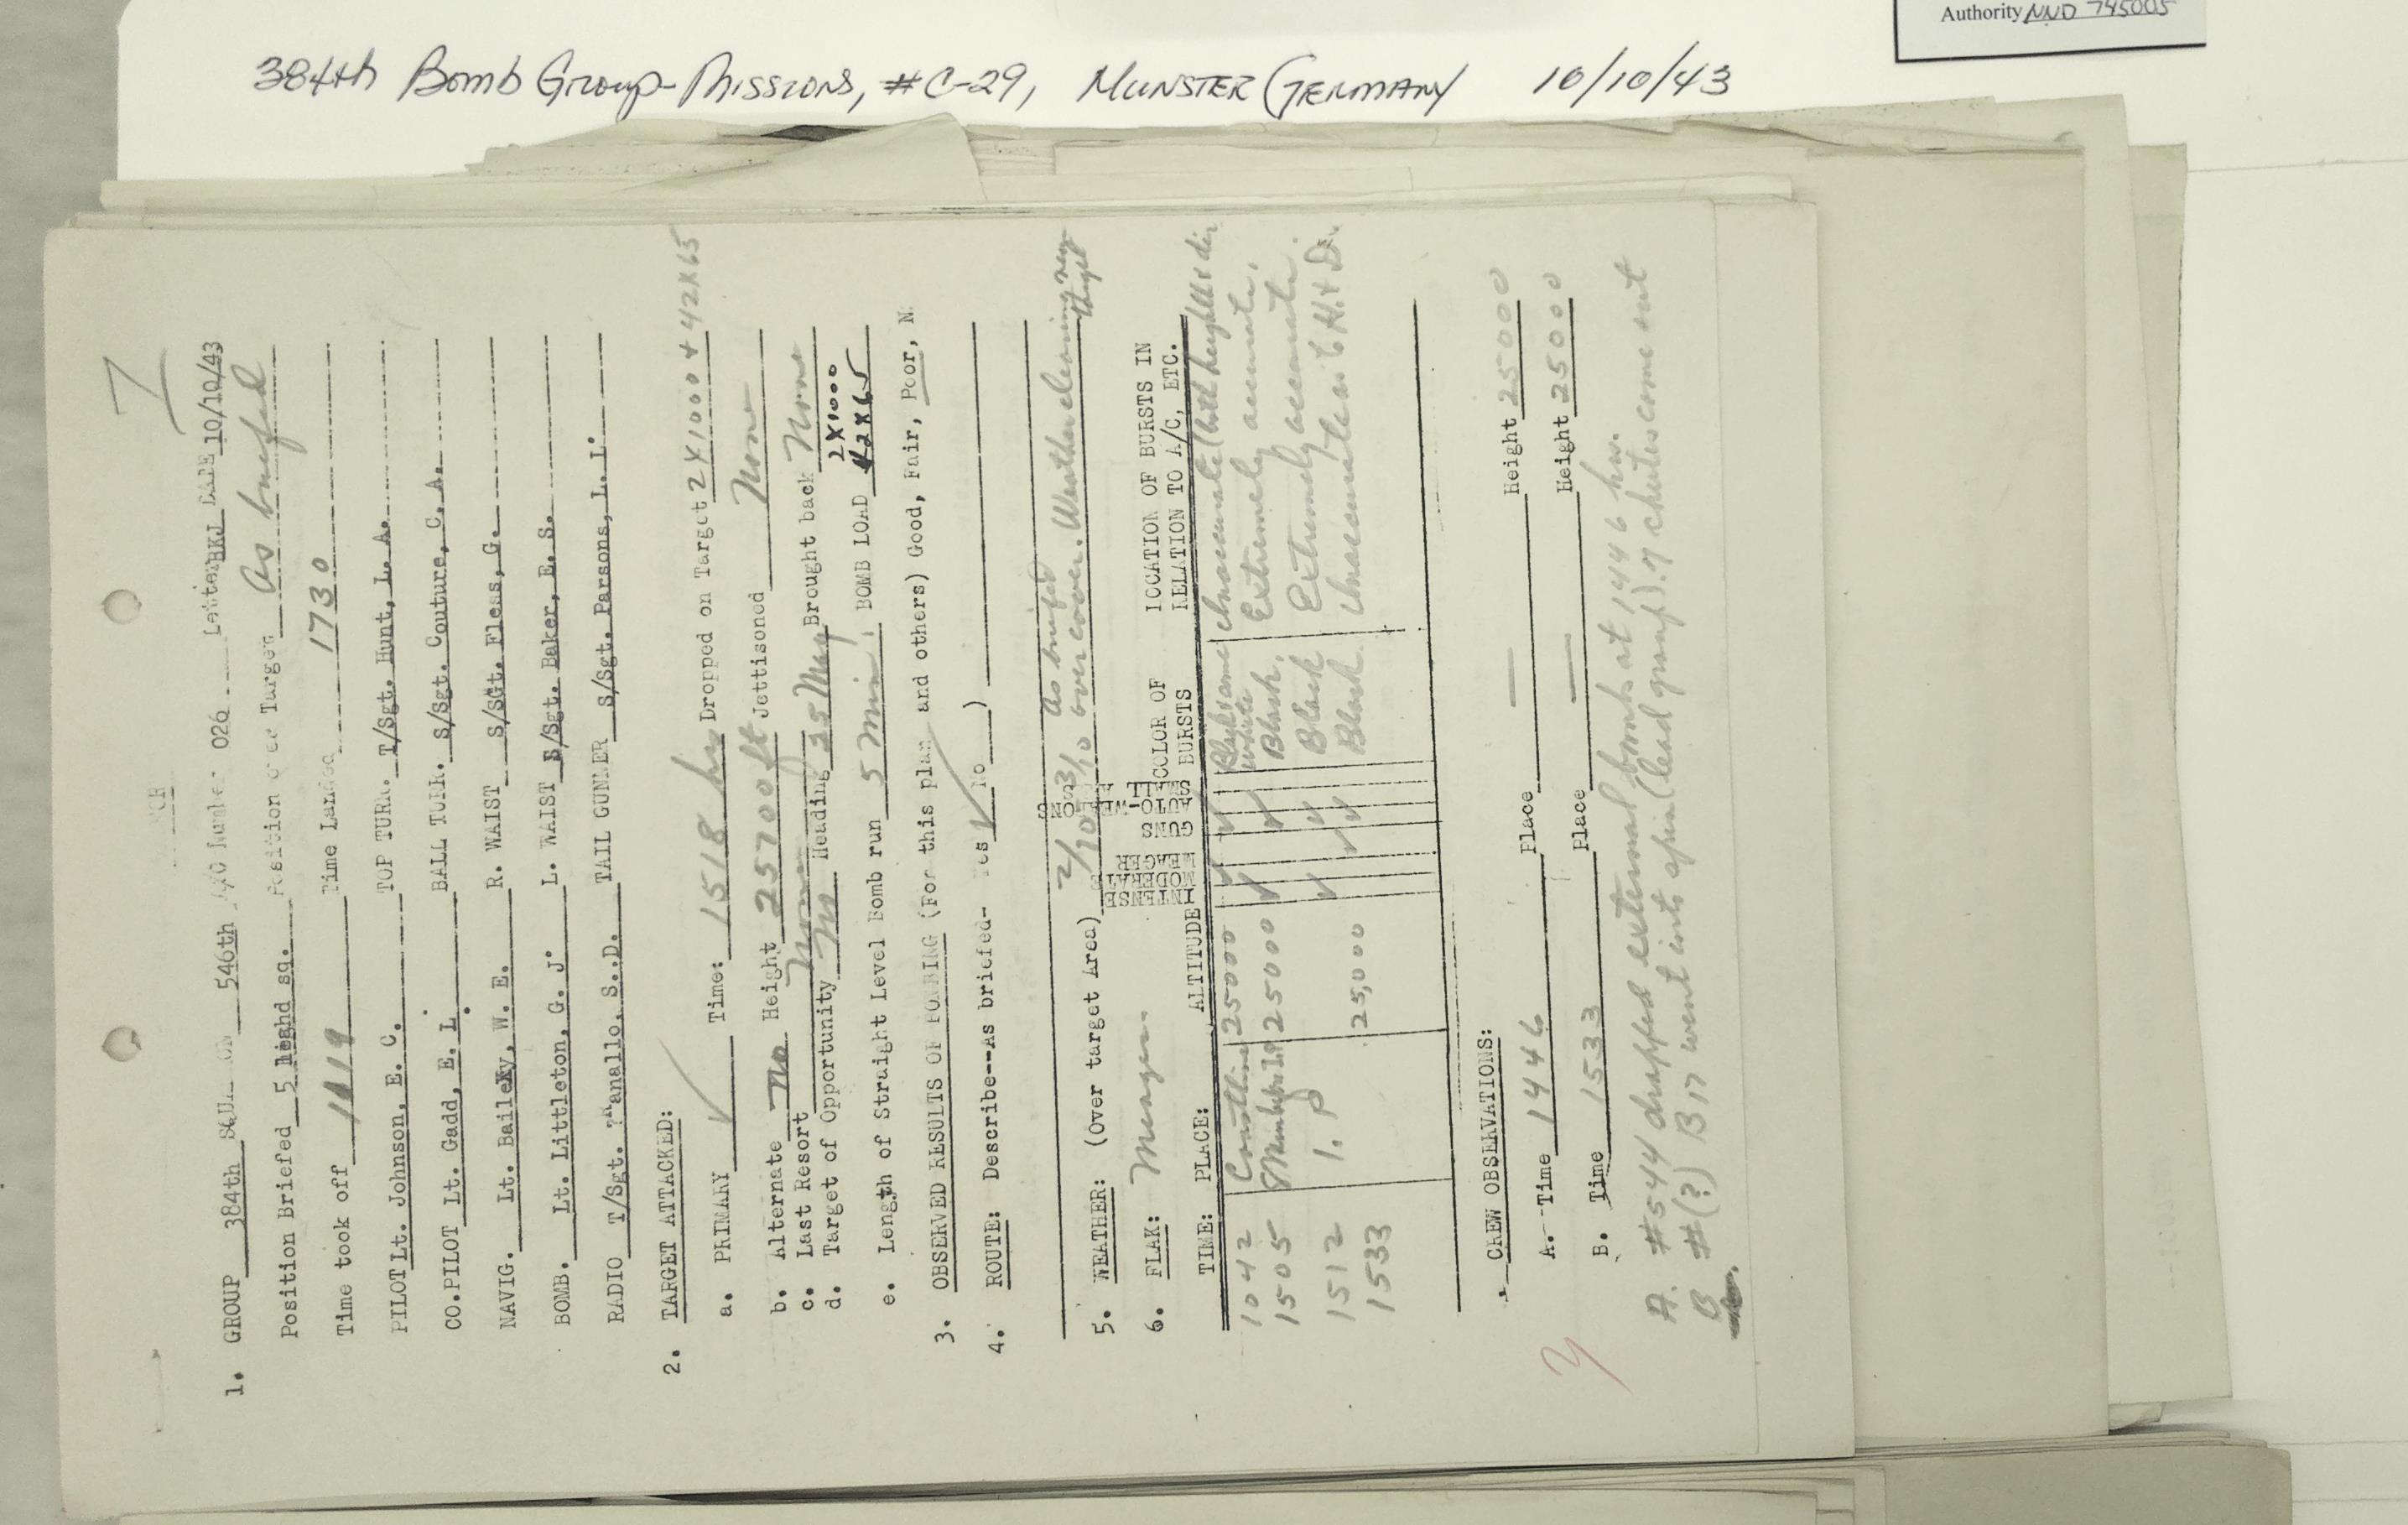 Authority NND 745005
384th Bomb Group-Missions, #C-29, Munster Germany 10/10/43
7
1. GROUP 384th SQUADRON 546th A/C Number 026 Letter BKJ DATE 10/10/43
Position Briefed 5 high sq. Position over Target As briefed
Time took off 1119 Time Landed 1730
PILOT Lt. Johnson, E. C. TOP TURR. T/Sgt. Hunt, L. A.
CO.PILOT Lt. Gadd, E. L. BALL TURR. S/Sgt. Couture, C. A.
NAVIG. Lt. Bailey, W. E. R. WAIST S/Sgt. Fleas, G.
BOMB. Lt. Littleton, G. J. L. WAIST S/Sgt. Baker, E. S.
RADIO T/Sgt. S. D. TAIL GUNNER S/Sgt. Parsons, L. L.
2. TARGET ATTACKED:
a. PRIMARY ✓ Time: 1518 hrs Dropped on Target 2X1000 + 42X65
b. Alternate No Height 25700 ft Jettisoned None
c. Last Resort None
d. Target of Opportunity No Heading 35 Mag Brought back None
2X1000
e. Length of Straight Level Bomb run 5 Min. BOMB LOAD 42X65
3. OBSERVED RESULTS OF BOMBING (For this plan and others) Good, Fair, Poor, N
4. ROUTE: Describe--As briefed- Yes ✓ No )
As briefed
5. WEATHER: (Over target Area) 2/10 - 3/10 over cover. Weather clearing near target
6. FLAK: Meager.
TIME: PLACE: ALTITUDE INTENSE MODERATE MEAGER GUNS AUTO-WEAPON SELF COLOR OF BURSTS LOCATION OF BURSTS IN RELATION TO A/C, ETC.
1042 Coastline 25000 ✓ ✓ Black & some white Inaccurate (both height & dir
1505 25000 ✓ ✓ Black. Extremely accurate.
1512 I.P ✓ ✓ Black Extremely accurate.
1533 25,000 ✓ ✓ Black Inaccurate as to H. & D.
CREW OBSERVATIONS:
A. Time 1446 Place — Height 25000
B. Time 1533 Place — Height 25000
A. #544 dropped external bombs at 1446 hrs.
B #(?) B17 went into spin (lead group). 7 chutes come out